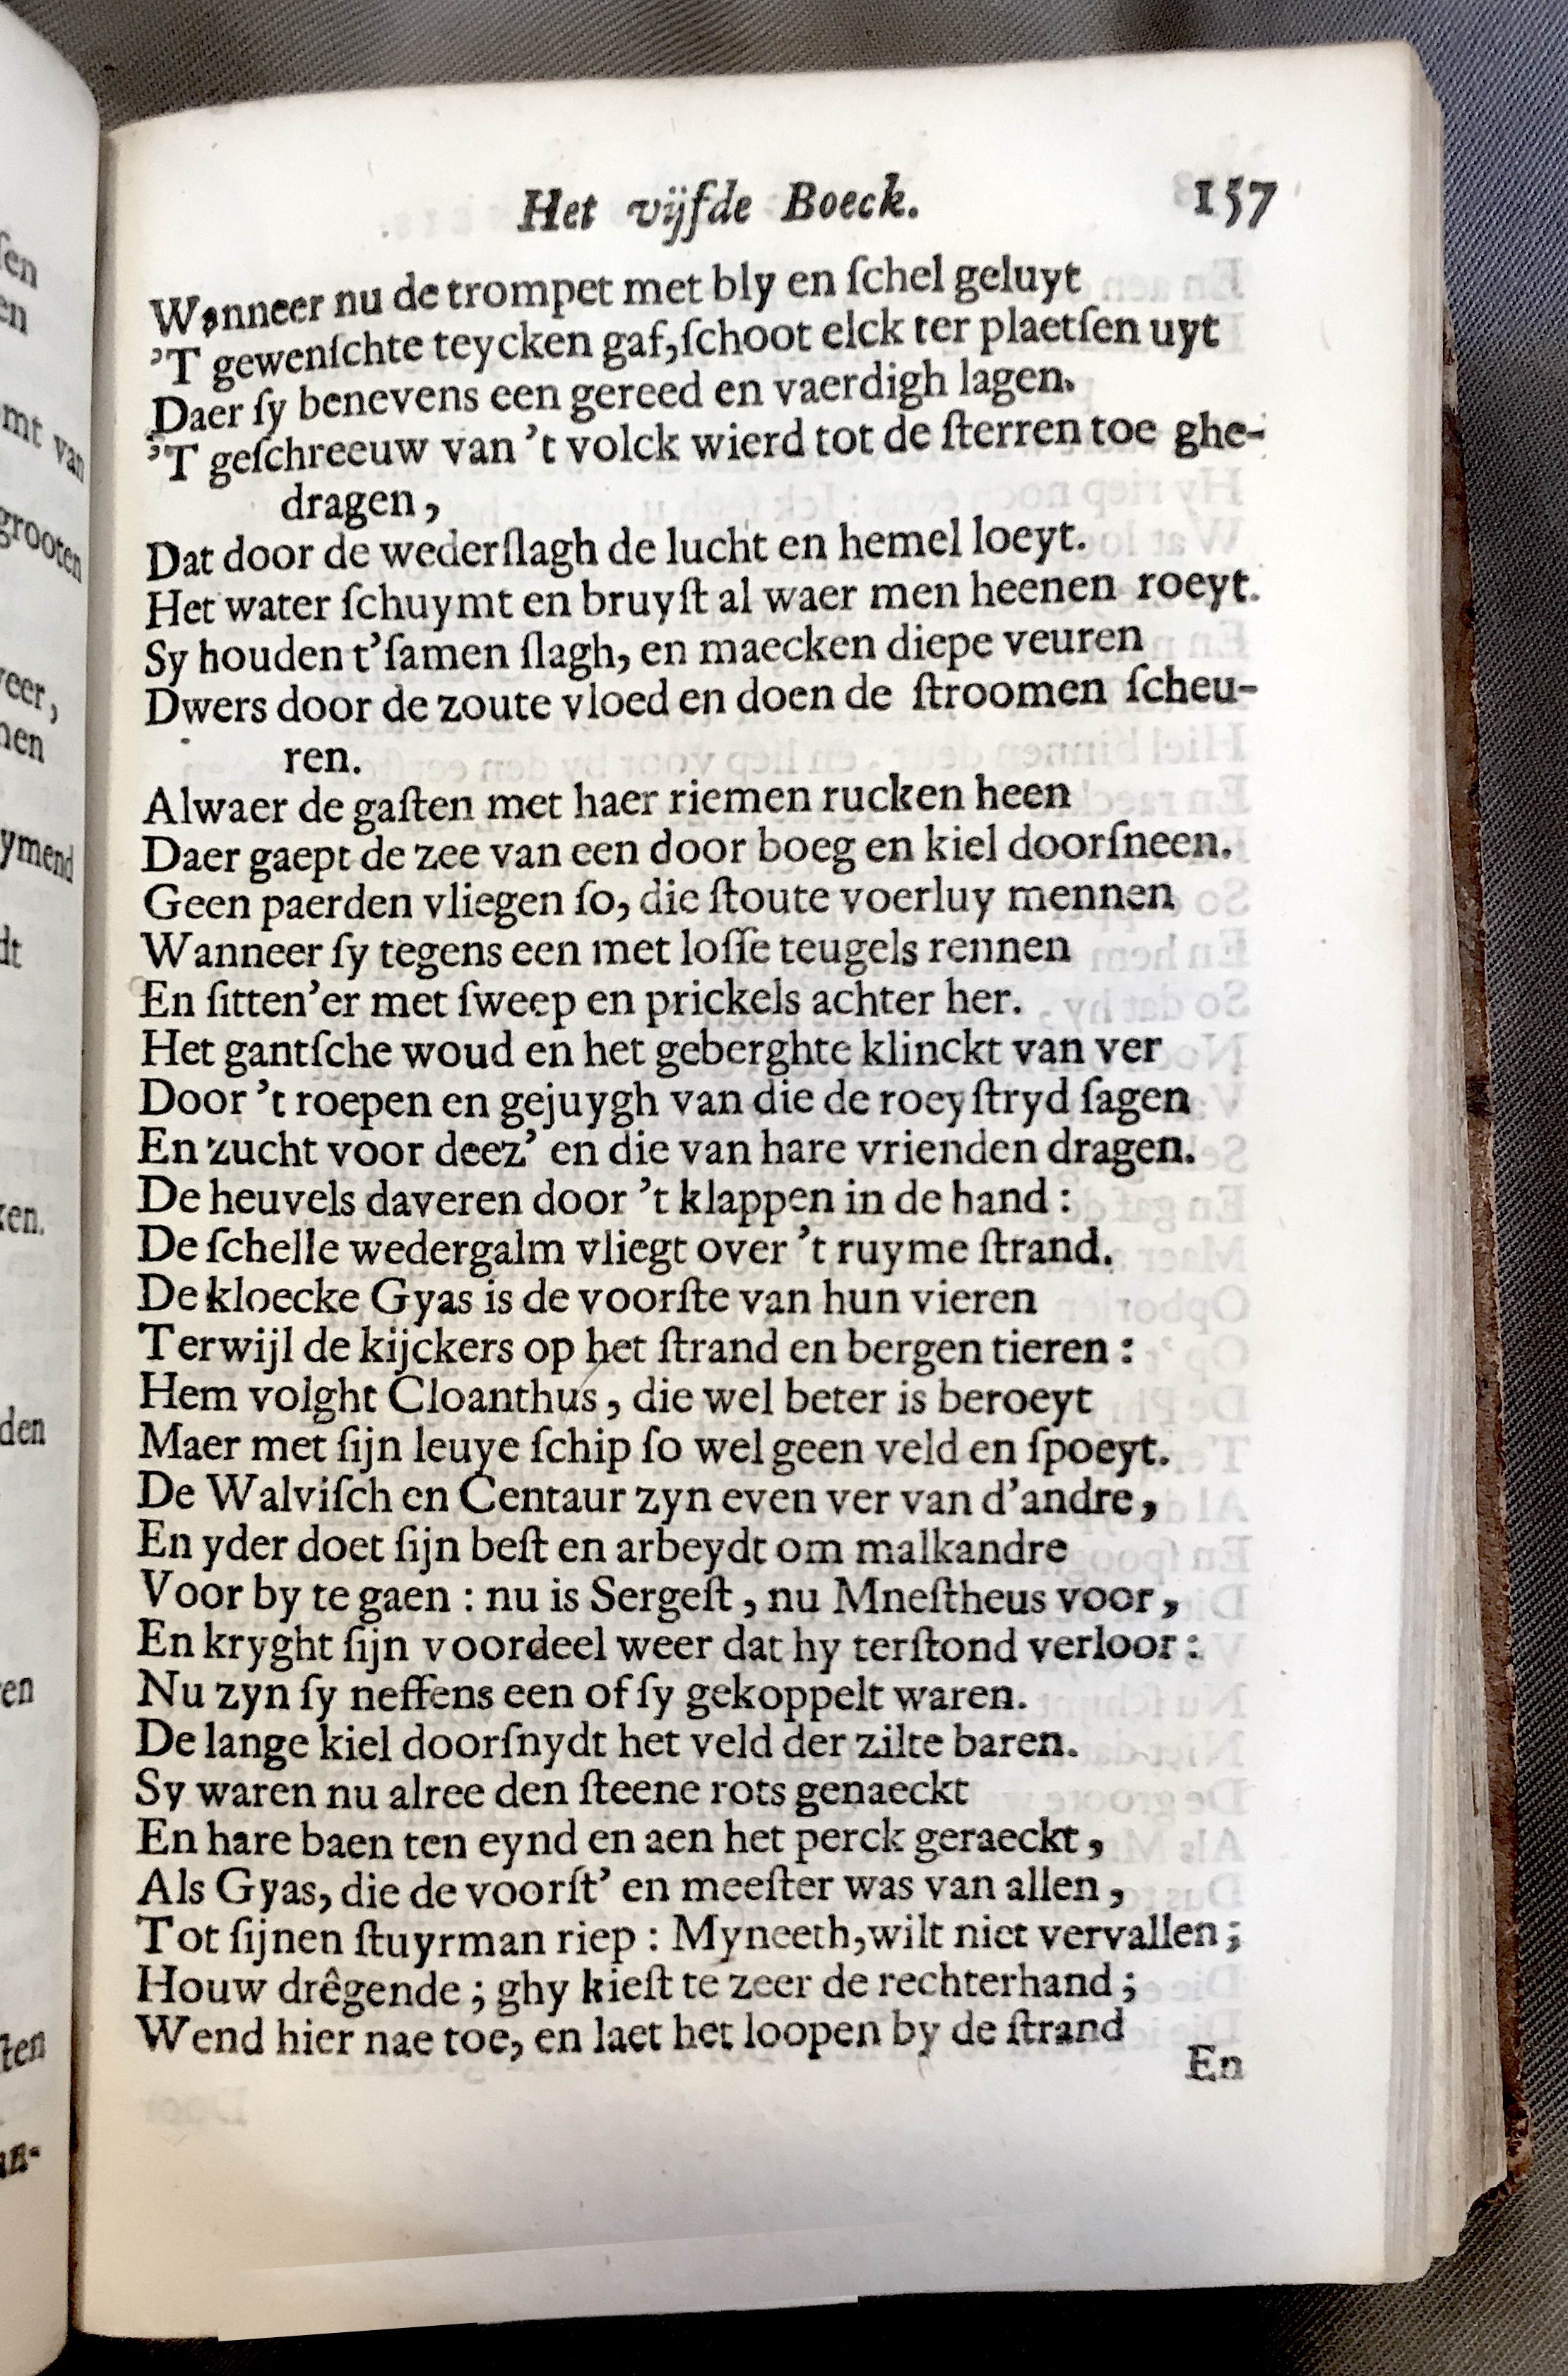 Het vijfde Boeck. 157
Wanneer nu de trompet met bly en ſchel geluyt
'T gewenſchte teycken gaf, ſchoot elck ter plaetſen uyt
Daer ſy benevens een gereed en vaerdigh lagen.
'T geſchreeuw van 't volck wierd tot de ſterren toe ghe-
dragen,
Dat door de wederſlagh de lucht en hemel loeyt.
Het water ſchuymt en bruyſt al waer men heenen roeyt.
Sy houden t'ſamen ſlagh, en maecken diepe veuren
Dwers door de zoute vloed en doen de ſtroomen ſcheu-
ren.
Alwaer de gaſten met haer riemen rucken heen
Daer gaept de zee van een door boeg en kiel doorſneen.
Geen paerden vliegen ſo, die ſtoute voerluy mennen
Wanneer ſy tegens een met loſſe teugels rennen
En ſitten'er met ſweep en prickels achter her.
Het gantſche woud en het geberghte klinckt van ver
Door 't roepen en gejuygh van die de roeyſtryd ſagen
En zucht voor deez' en die van hare vrienden dragen.
De heuvels daveren door 't klappen in de hand:
De ſchelle wedergalm vliegt over 't ruyme ſtrand.
De kloecke Gyas is de voorſte van hun vieren
Terwijl de kijckers op het ſtrand en bergen tieren:
Hem volght Cloanthus, die wel beter is beroeyt
Maer met ſijn leuye ſchip ſo wel geen veld en ſpoeyt.
De Walviſch en Centaur zyn even ver van d'andre,
En yder doet ſijn beſt en arbeydt om malkandre
Voor by te gaen: nu is Sergeſt, nu Mneſtheus voor,
En kryght ſijn voordeel weer dat hy terſtond verloor:
Nu zyn ſy neffens een of ſy gekoppelt waren.
De lange kiel doorſnydt het veld der zilte baren.
Sy waren nu alree den ſteene rots genaeckt
En hare baen ten eynd en aen het perck geraeckt,
Als Gyas, die de voorſt' en meeſter was van allen,
Tot ſijnen ſtuyrman riep: Myneeth, wilt niet vervallen;
Houw drêgende; ghy kieſt te zeer de rechterhand;
Wend hier nae toe, en laet het loopen by de ſtrand
En